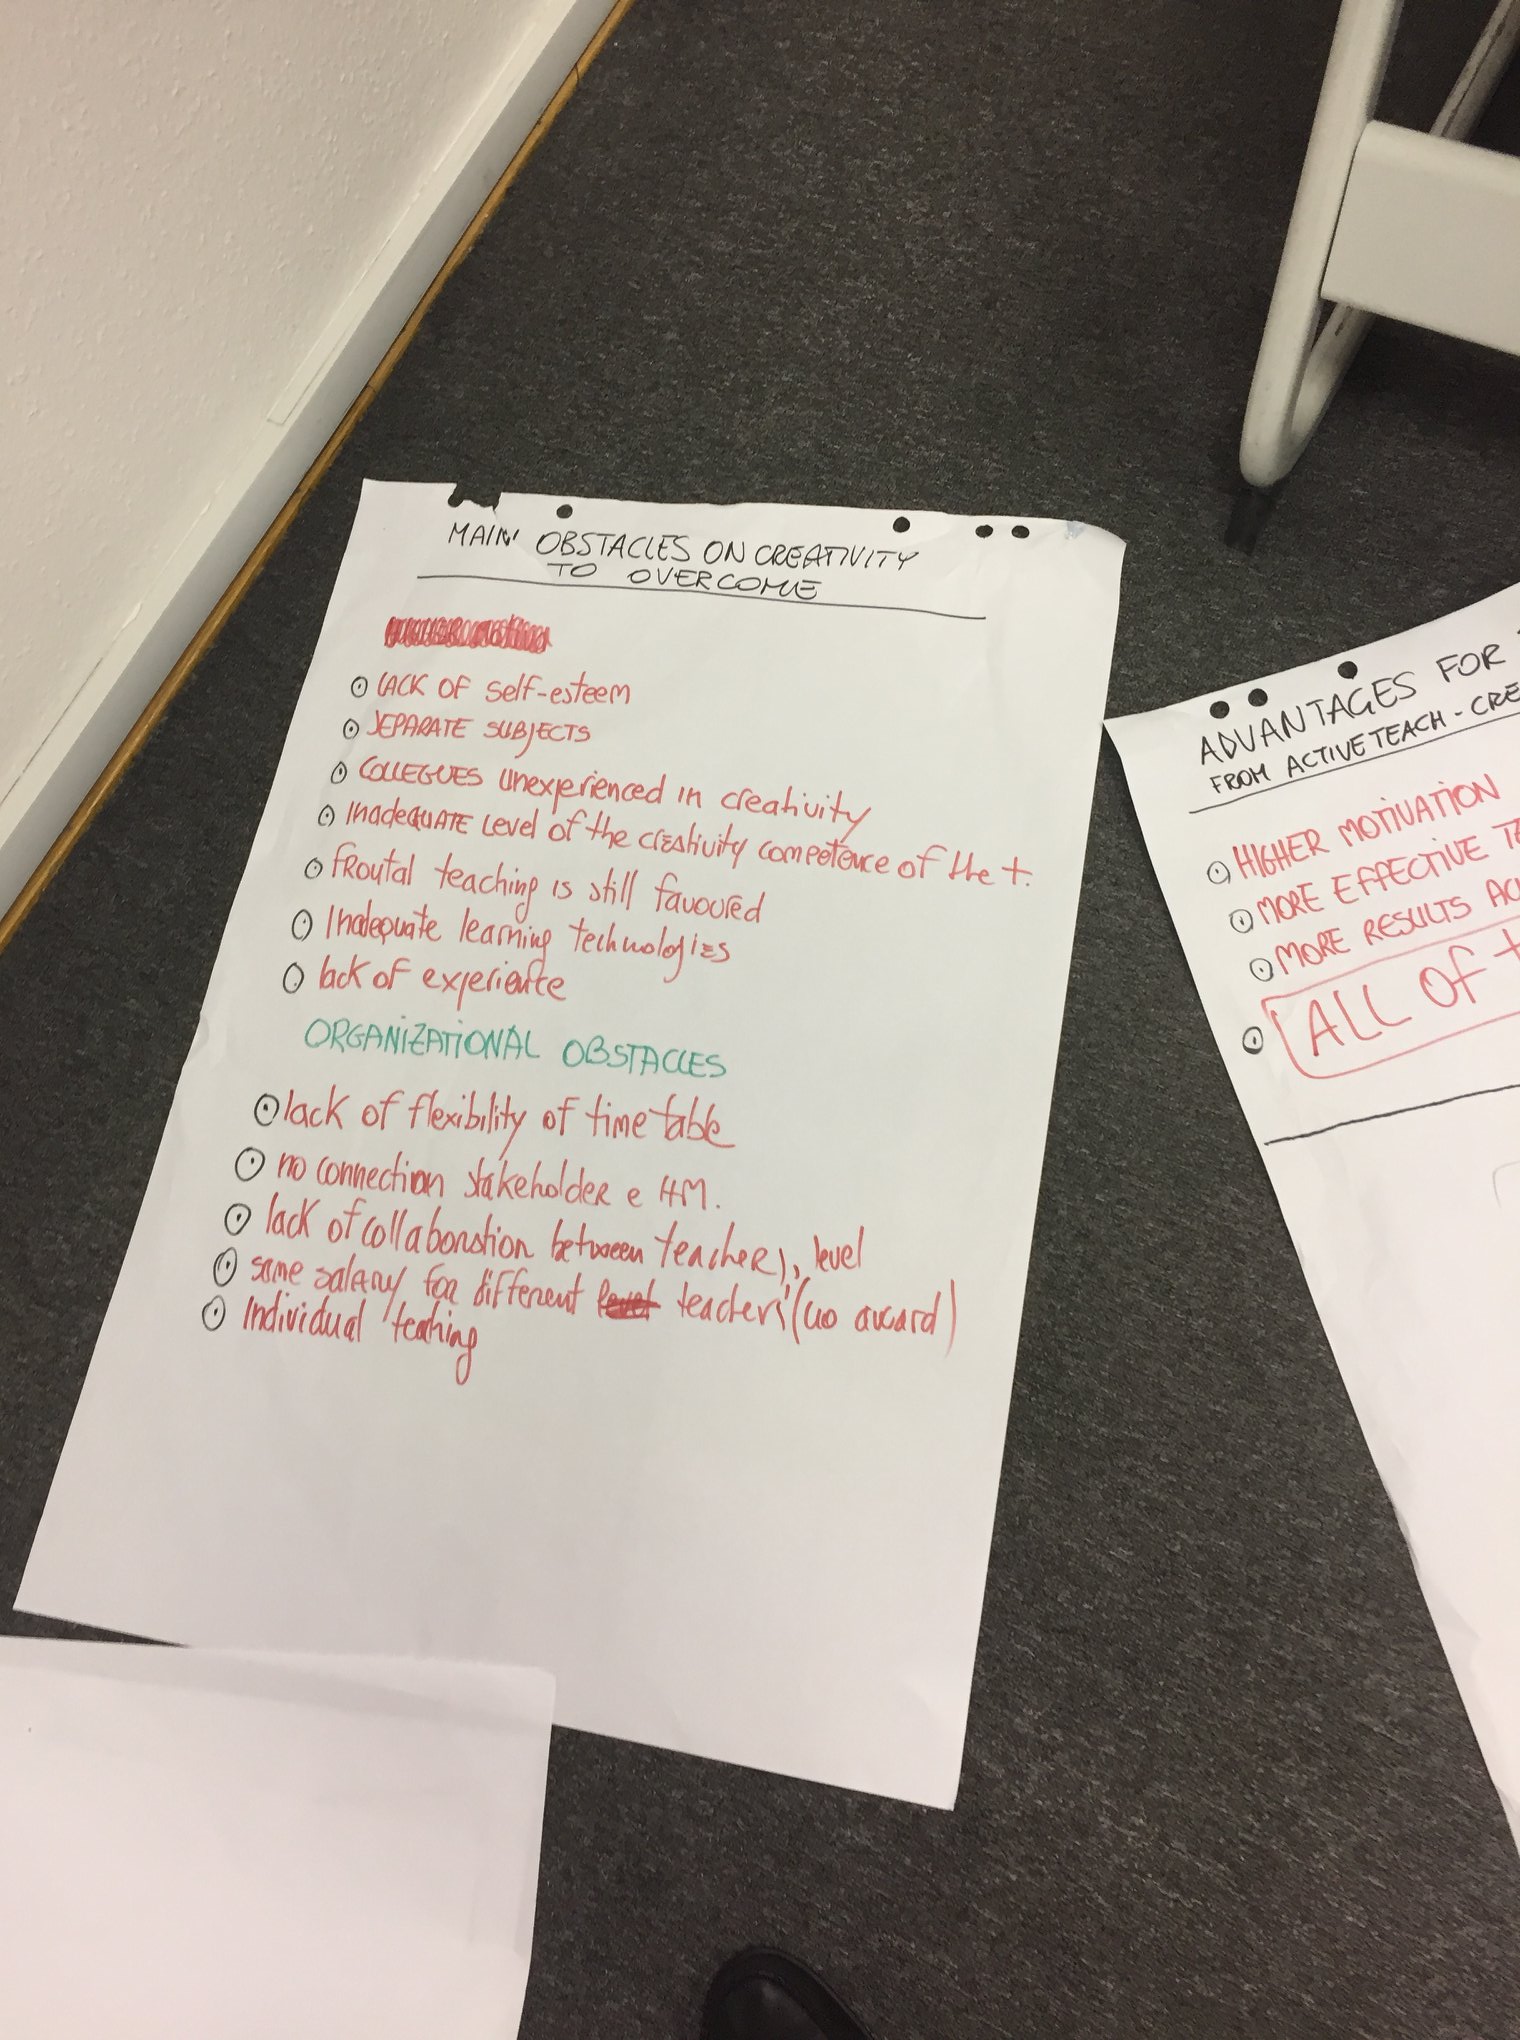 MAIN OBSTACLES ON CREATIVITY
TO OVERCOME
LACK OF self-esteem
SEPARATE SUBJECTS
COLLEGUES unexperienced in creativity
Inadequate Level of the creativity competence of the t.
frontal teaching is still favoured
Inadequate learning technologies
lack of experience
ORGANIZATIONAL OBSTACLES
lack of flexibility of time table
no connection stakeholder e HM.
lack of collaboration between teachers, level
same salary for different teachers (no award)
Individual teaching
ADVANTAGES FOR
FROM ACTIVE TEACH - CRE
HIGHER MOTIVATION
MORE EFFECTIVE TE
MORE RESULTS AC
ALL Of t